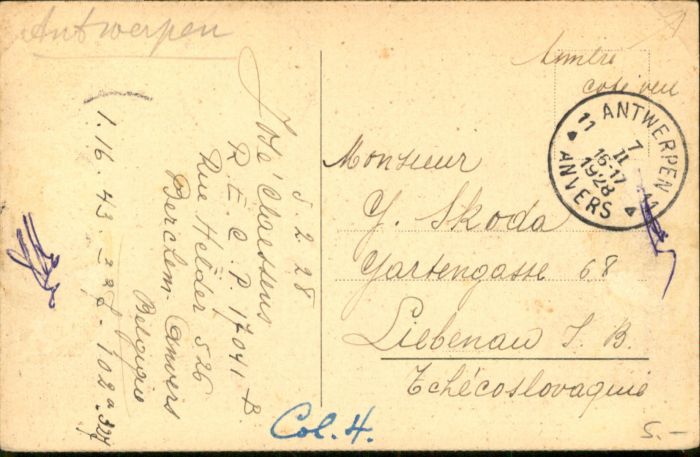 Antwerpen
5.2.28
José Claessens
R. E. C. P. 17041 B.
Rue Helder 526
Berchem Anvers
Belgique
1.16.43.
102
Timbre
coté vue
11 ANTWERPEN 11
7
II
16-17
1928
ANVERS
Monsieur
Y. Skoda
Gartengasse 68
Liebenau I. B.
Tchécoslovaquie
Col. H.
5.-